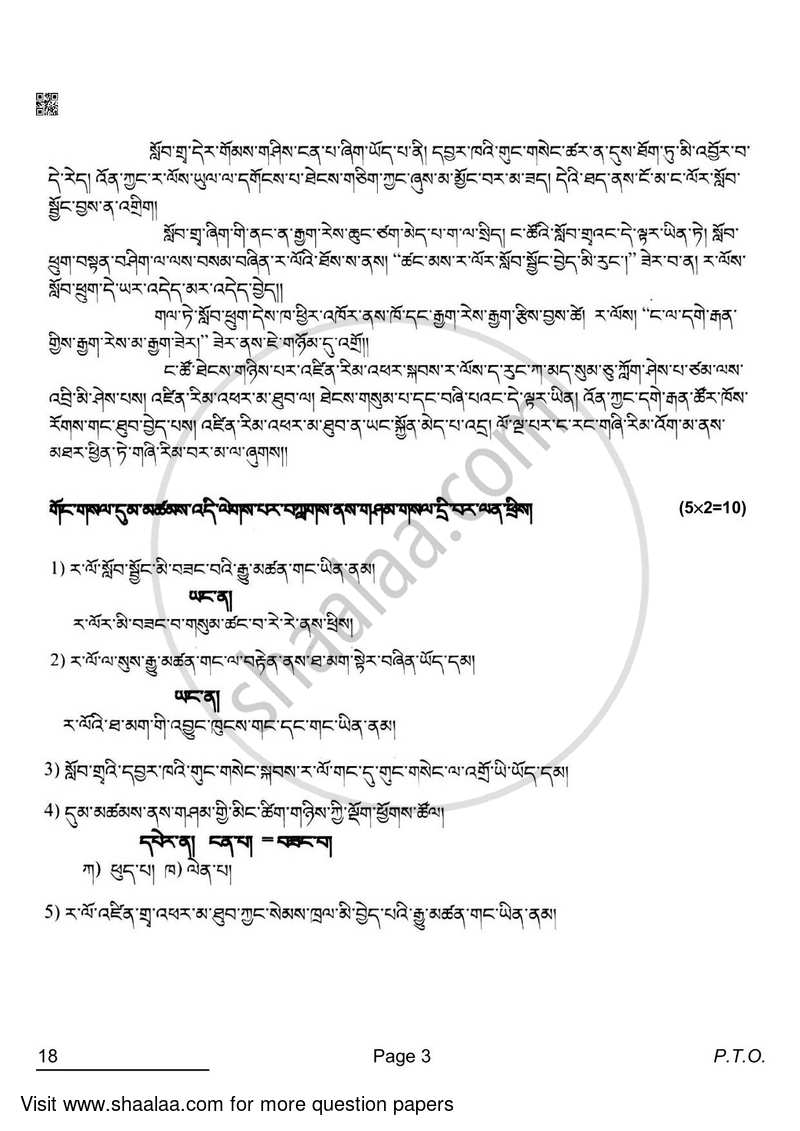 སློབ་གྲྭ་དེར་གོམས་གཤིས་ངན་པ་ཞིག་ཡོད་པ་ནི། དབྱར་ཁའི་གུང་གསེང་ཚར་ན་དུས་ཐོག་ཏུ་མི་འབྱོར་བ་
དེ་རེད། འོན་ཀྱང་ར་ལོས་ཡུལ་ལ་དགོངས་པ་ཐེངས་གཅིག་ཀྱང་ཞུས་མ་མྱོང་བར་མ་ཟད། དེའི་ཐད་ནས་ངོ་མ་ང་ལོར་སློབ་
སྦྱོང་བྱས་ན་འགྲིག།
སློབ་གྲྭ་ཞིག་གི་ནང་ན་རྒྱག་རེས་ཆུང་ཙག་མེད་པ་ག་ལ་སྲིད། ང་ཚོའི་སློབ་གྲྭའང་དེ་ལྟར་ཡིན་ཏེ། སློབ་
ཕྲུག་བསྟན་བཤིག་ལ་ལས་བསམ་བཞིན་ར་ལོའི་ཐོས་ས་ནས། “ཚང་མས་ར་ལོར་སློབ་སྦྱོང་བྱེད་མི་རུང་།” ཟེར་བ་ན། ར་ལོས་
སློབ་ཕྲུག་དེ་ཡར་འདེད་མར་འདེད་བྱེད།།
གལ་ཏེ་སློབ་ཕྲུག་དེས་ཁ་ཕྱིར་འཁོར་ནས་ཁོ་དང་རྒྱག་རེས་རྒྱག་རྩིས་བྱས་ཚེ། ར་ལོས། “ང་ལ་དགེ་རྒན་
གྱིས་རྒྱག་རེས་མ་རྒྱག་ཟེར།” ཟེར་ནས་ཇེ་གཉོམ་དུ་འགྲོ།།
ང་ཚོ་ཐེངས་གཉིས་པར་འཛིན་རིམ་འཕར་སྐབས་ར་ལོས་ད་རུང་ཀ་མད་སུམ་ཅུ་ཀློག་ཤེས་པ་ཙམ་ལས་
འབྲི་མི་ཤེས་པས། འཛིན་རིམ་འཕར་མ་ཐུབ་ལ། ཐེངས་གསུམ་པ་དང་བཞི་པའང་དེ་ལྟར་ཡིན། འོན་ཀྱང་དགེ་རྒན་ཚོར་ཁོས་
རོགས་གང་ཐུབ་བྱེད་པས། འཛིན་རིམ་འཕར་མ་ཐུབ་ན་ཡང་སྐྱོན་མེད་པ་འདྲ། ལོ་ལྔ་པར་ང་རང་གཞི་རིམ་འོག་མ་ནས་
མཐར་ཕྱིན་ཏེ་གཞི་རིམ་བར་མ་ལ་ཞུགས།།
གོང་གསལ་དུམ་མཚམས་འདི་ལེགས་པར་བཀླགས་ནས་གཤམ་གསལ་དྲི་བར་ལན་ཕྲིས། (5×2=10)
1) ར་ལོ་སློབ་སྦྱོང་མི་བཟང་བའི་རྒྱུ་མཚན་གང་ཡིན་ནམ།
ཡང་ན།
ར་ལོར་མི་བཟང་བ་གསུམ་ཚང་བ་རེ་རེ་ནས་ཕྲིས།
2) ར་ལོ་ལ་སུས་རྒྱུ་མཚན་གང་ལ་བརྟེན་ནས་ཐ་མག་སྟེར་བཞིན་ཡོད་དམ།
ཡང་ན།
ར་ལོའི་ཐ་མག་གི་འབྱུང་ཁུངས་གང་དང་གང་ཡིན་ནམ།
3) སློབ་གྲྭའི་དབྱར་ཁའི་གུང་གསེང་སྐབས་ར་ལོ་གང་དུ་གུང་གསེང་ལ་འགྲོ་ཡི་ཡོད་དམ།
4) དུམ་མཚམས་ནས་གཤམ་གྱི་མིང་ཚིག་གཉིས་ཀྱི་ལྡོག་ཕྱོགས་ཚོལ།
དཔེར་ན། ངན་པ། = བཟང་བ།
ཀ) ཕུད་པ། ཁ) ལེན་པ།
5) ར་ལོ་འཛིན་གྲྭ་འཕར་མ་ཐུབ་ཀྱང་སེམས་ཁྲལ་མི་བྱེད་པའི་རྒྱུ་མཚན་གང་ཡིན་ནམ།
18 Page 3 P.T.O.
Visit www.shaalaa.com for more question papers
shaalaa.com